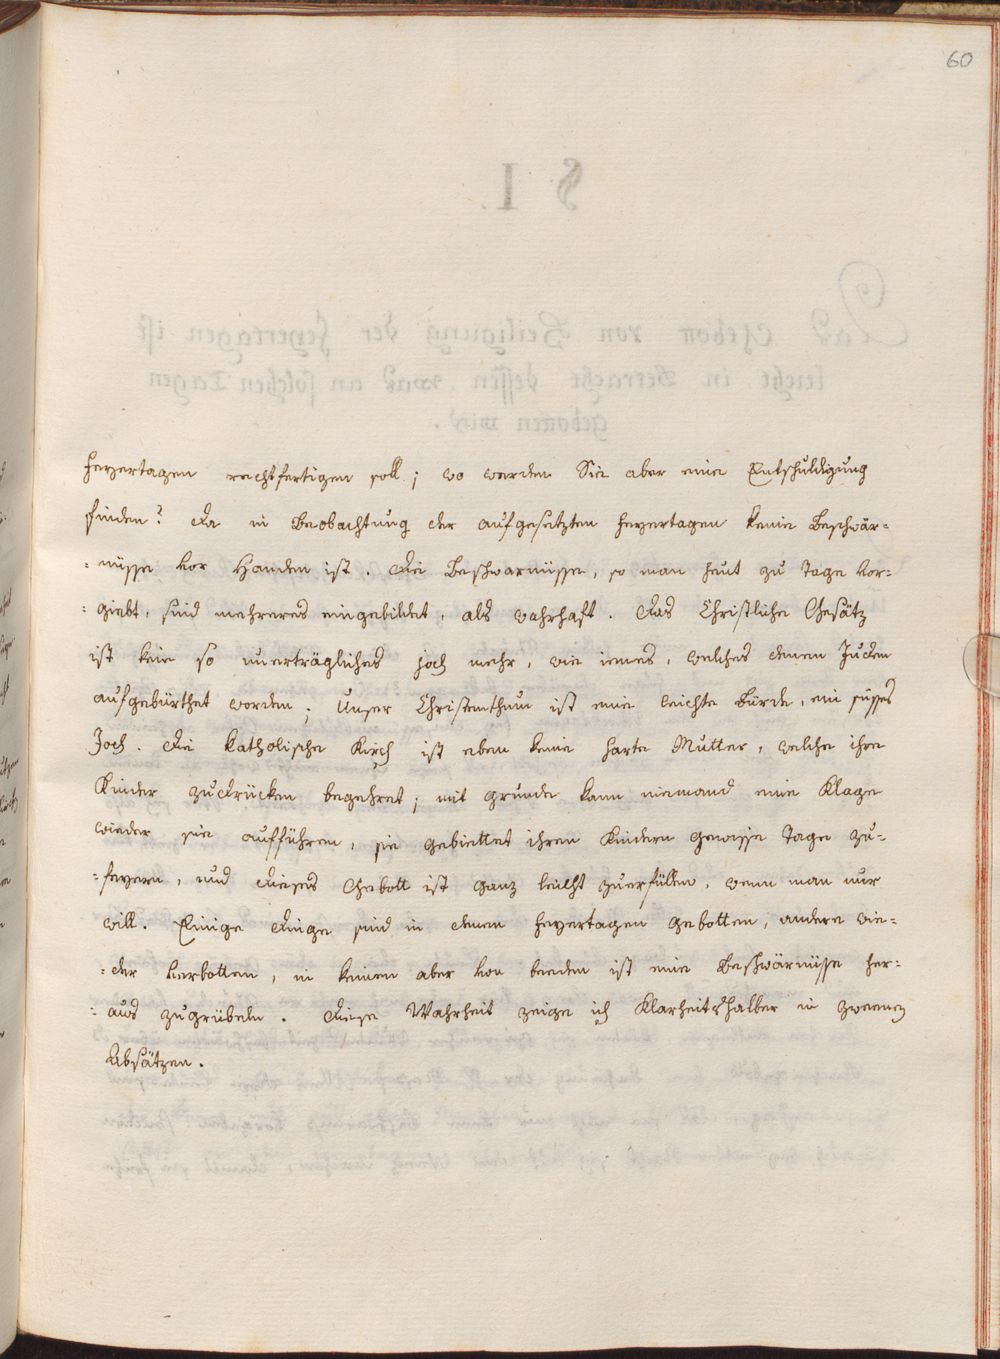 60
feyertagen rechtfertigen soll; wo werden Sie aber eine Entschuldigung
finden? Da in Beobachtung der aufgesetzten feyertagen keine Beschwär-
-nüsse vor Handen ist. Die Beschwarnüsse, so man heut zu Tage vor-
-giebt, sind mehreres eingebildet, als wahrhaft. Das Christliche Gesätz
ist kein so unerträgliches joch mehr, wie jenes, welches denen Juden
aufgebürthet worden; Unser Christenthum ist eine leichte Bürde, ein süsses
Joch. Die katholische Kirch ist eben keine harte Mutter, welche ihre
Kinder zudrücken begehret; mit grunde kann niemand eine Klage
wieder sie aufführen, sie gebiettet ihren Kindern gewisse Tage zu-
-feyern, und dieses Gebott ist ganz leicht zuerfüllen, wenn man nur
will. Einige Dinge sind in denen feyertagen gebotten, andere wie-
-der verbotten, in keinen aber von beeden ist eine Beschwärnüsse her-
-aus zugrübeln. Diese Wahrheit zeige ich Klarheitshalber in zweenen
Absätzen.